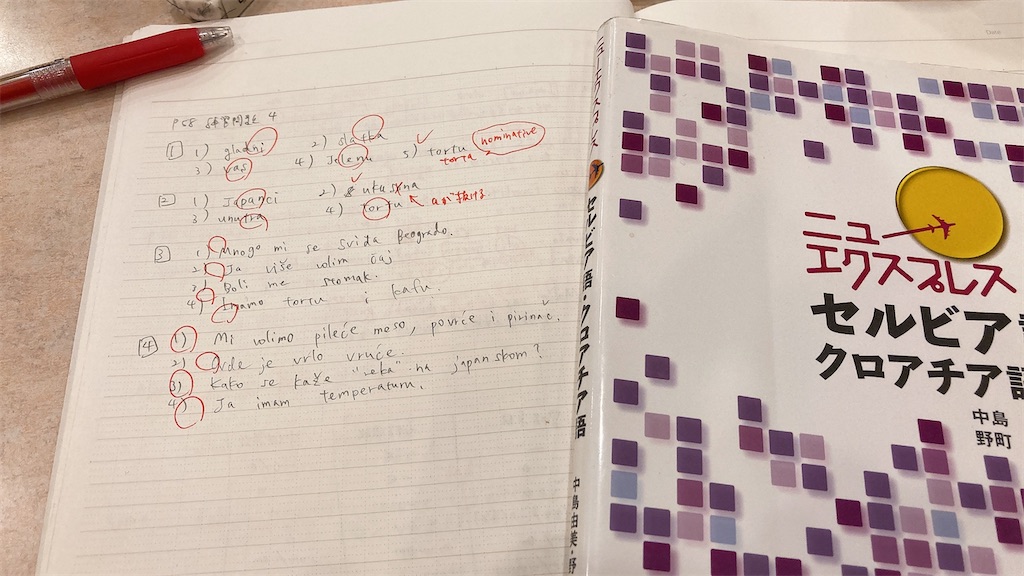 P58 練習問題 4
1 1) gladni 2) slatka
3) vaš 4) Jelenu 5) tortu nominative
torta
2 1) Japanci 2) ukusna
3) unutra 4) tortu aが抜ける
3 1) Mnogo mi se sviđa Beograd.
2) Ja više volim čaj
3) Boli me stomak.
4) Imamo tortu i kafu.
4 1) Mi volimo pileće meso, povrće i pirinač.
2) Ovde je vrlo vruće.
3) Kako se kaže "reka" na japanskom?
4) Ja imam temperaturu.
Date
ニューエクスプレス
セルビア語・クロアチア語
中島由美・野
ニュー
エクスプレス
セルビア語
クロアチア語
中島
野町